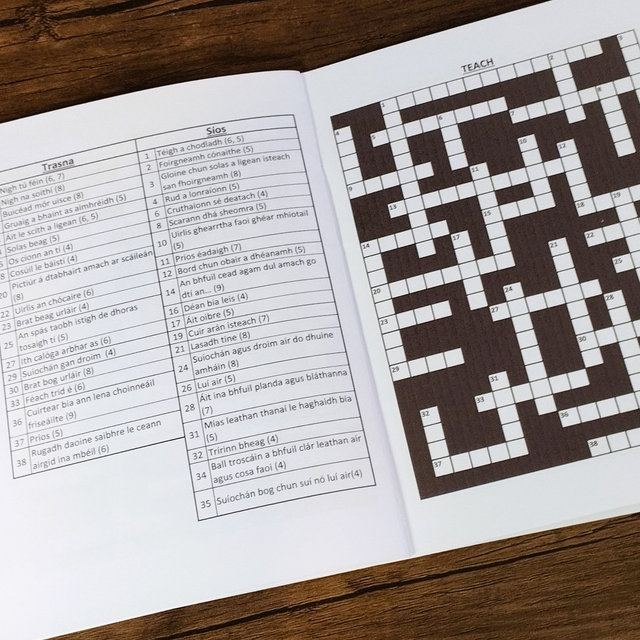 Trasna
Nigh tú féin (6, 7)
Nigh na soithí (8)
Buicéad mór uisce (8)
Gruaig a bhaint as aimhréidh (5)
Áit le scíth a ligean (6, 5)
Solas beag (5)
Os cionn an tí (4)
Cosúil le báistí (4)
Pictiúr á dtabhairt amach ar scáileán
(8)
22 Uirlis an chócaire (6)
23 Brat beag urláir (4)
25 An spás taobh istigh de dhoras
tosaigh tí (5)
27 Ith calóga arbhar as (6)
29 Suíochán gan droim (4)
30 Brat bog urláir (8)
33 Féach tríd é (6)
36 Cuirtear bia ann lena choinneáil
friseáilte (9)
37 Prios (5)
38 Rugadh daoine saibhre le ceann
airgid ina mbéil (6)
Síos
1 Téigh a chodladh (6, 5)
2 Foirgneamh cónaithe (5)
3 Gloine chun solas a ligean isteach
san fhoirgneamh (8)
4 Rud a lonraíonn (5)
6 Cruthaíonn sé deatach (4)
8 Scarann dhá sheomra (5)
10 Uirlis ghearrtha faoi ghéar mhiotail
(5)
11 Prios éadaigh (7)
12 Bord chun obair a dhéanamh (5)
14 An bhfuil cead agam dul amach go
dtí an... (9)
16 Déan bia leis (4)
17 Áit oibre (5)
19 Cuir arán isteach (7)
21 Lasadh tine (8)
24 Suíochán agus droim air do dhuine
amháin (8)
26 Luí air (5)
28 Áit ina bhfuil planda agus bláthanna
(7)
31 Mias leathan thanaí le haghaidh bia
(5)
32 Tirirnn bheag (4)
34 Ball troscáin a bhfuil clár leathan air
agus cosa faoi (4)
35 Suíochán bog chun suí nó luí air(4)
TEACH